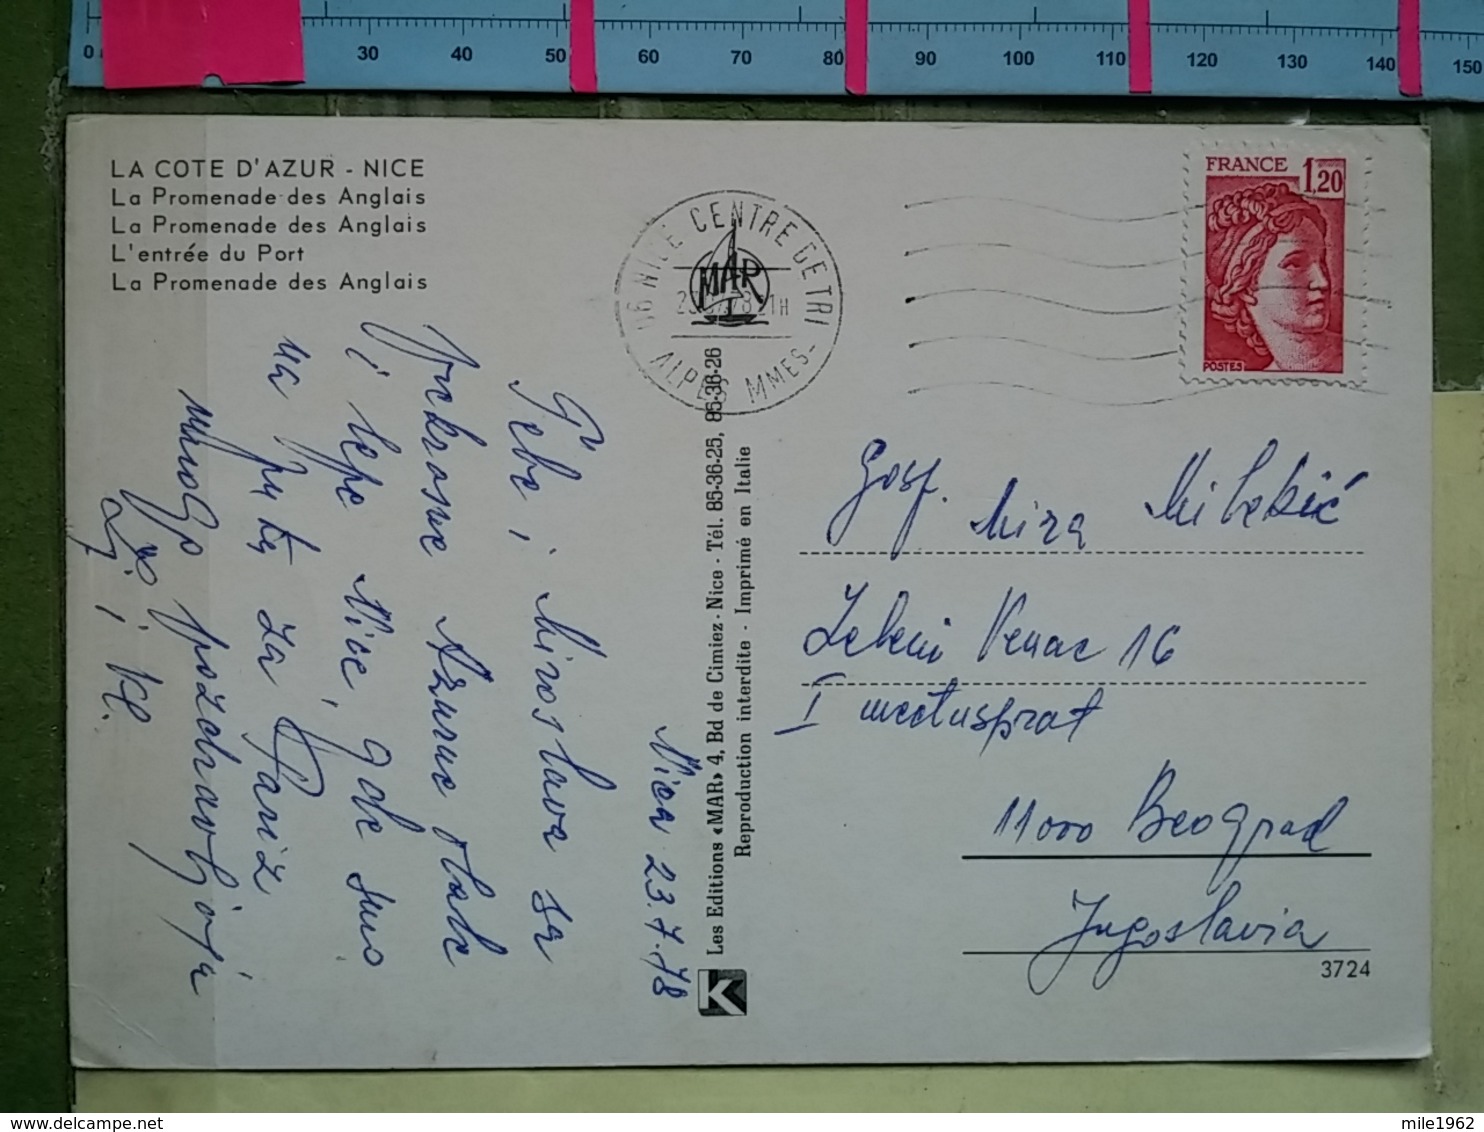 0 30 40 50 60 70 80 90 100 110 120 130 140 150
LA COTE D'AZUR - NICE
La Promenade des Anglais
La Promenade des Anglais
L'entrée du Port
La Promenade des Anglais
06 NICE CENTRE DE TRI
ALPES MMES-
MAR
FRANCE 1,20
POSTES
Nica 23.7.78
Tebi i Miroslava sa
prekrasne Azurne obale
i lepe Nice, gde smo
na putu za Pariz
mnogo pozdravlja
i Vl.
Les Editions «MAR» 4, Bd de Cimiez - Nice - Tél. 85-36-25, 85-36-26
Reproduction interdite - Imprimé en Italie
K
Gosp. Mira Milekić
Zeleni Venac 16
I međusprat
11000 Beograd
Jugoslavia
3724
mile1962